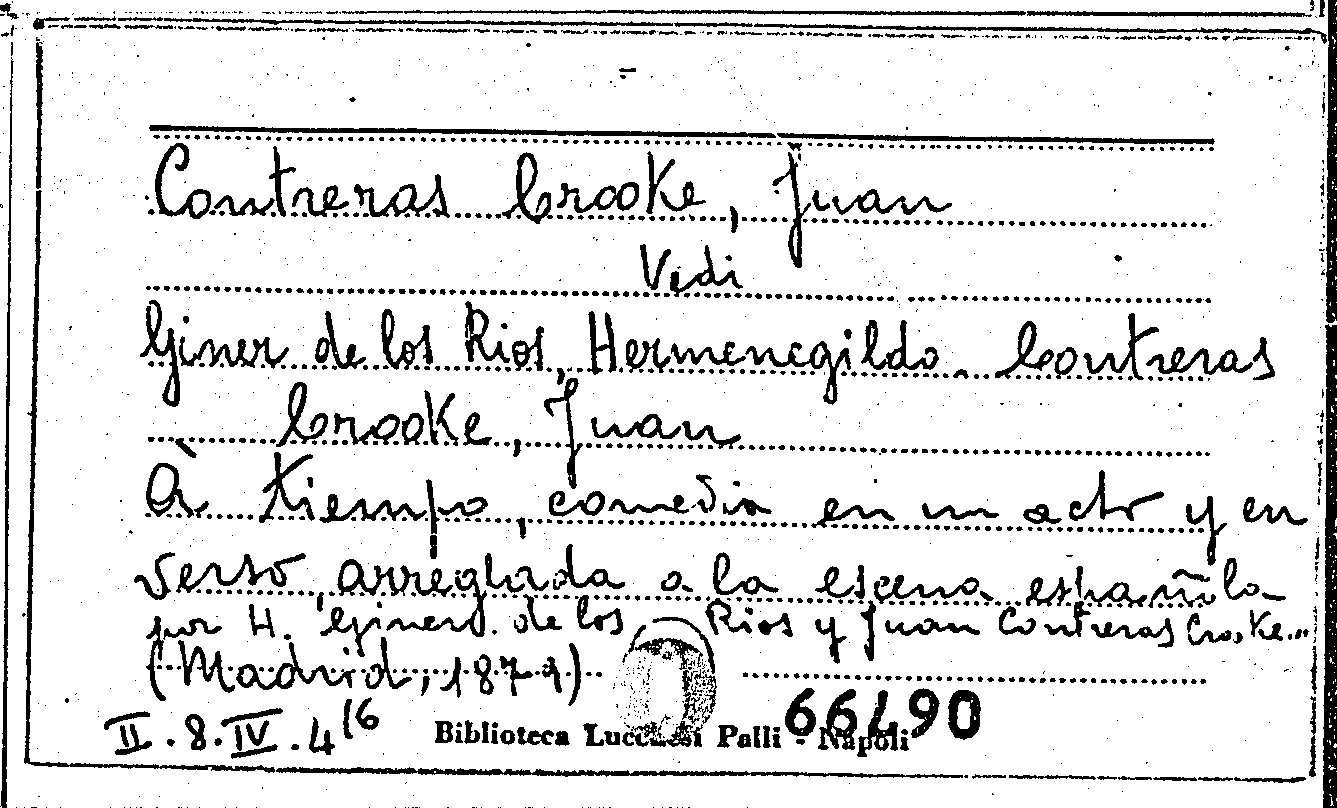 Contreras Crooke, Juan
Vedi
Giner de los Rios, Hermenegildo. Contreras
Crooke, Juan
À tiempo, comedia en un acto y en
verso, arreglada a la escena española
por H. Giner de los Rios y Juan Contreras Crooke...
(Madrid, 1879)
II.8.IV.4 16
Biblioteca Lucchesi Palli - Napoli
66490